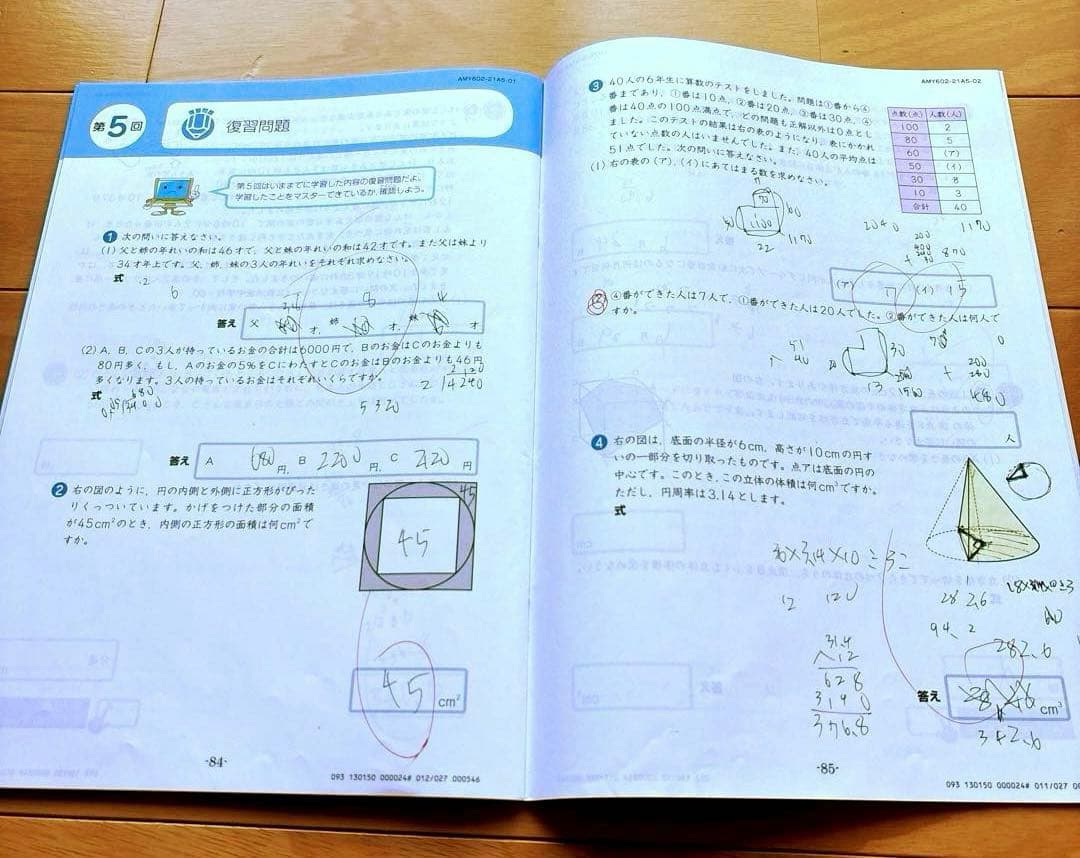 AMY602-21A5-01
第5回
復習問題
復習問題
第5回はいままでに学習した内容の復習問題だよ。
学習したことをマスターできているか、確認しよう。
1 次の問いに答えなさい。
(1) 父と姉の年れいの和は46才で、父と妹の年れいの和は42才です。また父は妹より
34才年上です。父、姉、妹の3人の年れいをそれぞれ求めなさい。
式
2
6
8
答え 父 才, 姉 才, 妹 才
(2) A, B, Cの3人が持っているお金の合計は6000円で、Bのお金はCのお金よりも
80円多く、もし、Aのお金の5%をCにわたすとCのお金はBのお金よりも46円
多くなります。3人の持っているお金はそれぞれいくらですか。
式
5320
答え A 680 円, B 2200 円, C 2120 円
2 右の図のように、円の内側と外側に正方形がぴった
りくっついています。かげをつけた部分の面積
が45cm²のとき、内側の正方形の面積は何cm²で
すか。
45
45
45 cm²
-84-
093 130150 000024# 012/027 000546
AMY602-21A5-02
3 40人の6年生に算数のテストをしました。問題は①番から④
番まであり、①番は10点、②番は20点、③番は30点、④
番は40点の100点満点で、どの問題も正解以外は0点とし
ました。このテストの結果は右の表のようになり、表にかかれ
ていない点数の人はいませんでした。また、40人の平均点は
51点でした。次の問いに答えなさい。
(1) 右の表の(ア), (イ)にあてはまる数を求めなさい。
点数(点) 人数(人)
100 2
80 5
60 (ア)
50 (イ)
30 8
10 3
合計 40
70
1100
60
22
1170
2040
1170
870
(ア) 7 (イ) 15
(2) ④番ができた人は7人で、①番ができた人は20人でした。②番ができた人は何人で
すか。
51
40
30
13
1560
200
+ 280
480
人
4 右の図は、底面の半径が6cm、高さが10cmの円す
いの一部分を切り取ったものです。点アは底面の円の
中心です。このとき、この立体の体積は何cm³ですか。
ただし、円周率は3.14とします。
式
12 120
282.6
94.2
31.4
×12
628
3140
376.8
282.6
答え cm³
342.6
-85-
093 130150 000024# 011/027 000